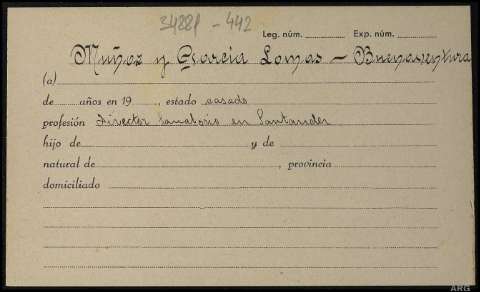 34221 - 442
Leg. núm. Exp. núm.
Muñoz y García Lomas - Buenaventura
(a)
de años en 19 , estado casado
profesión Director Sanatorio en Santander
hijo de y de
natural de , provincia
domiciliado
ARG